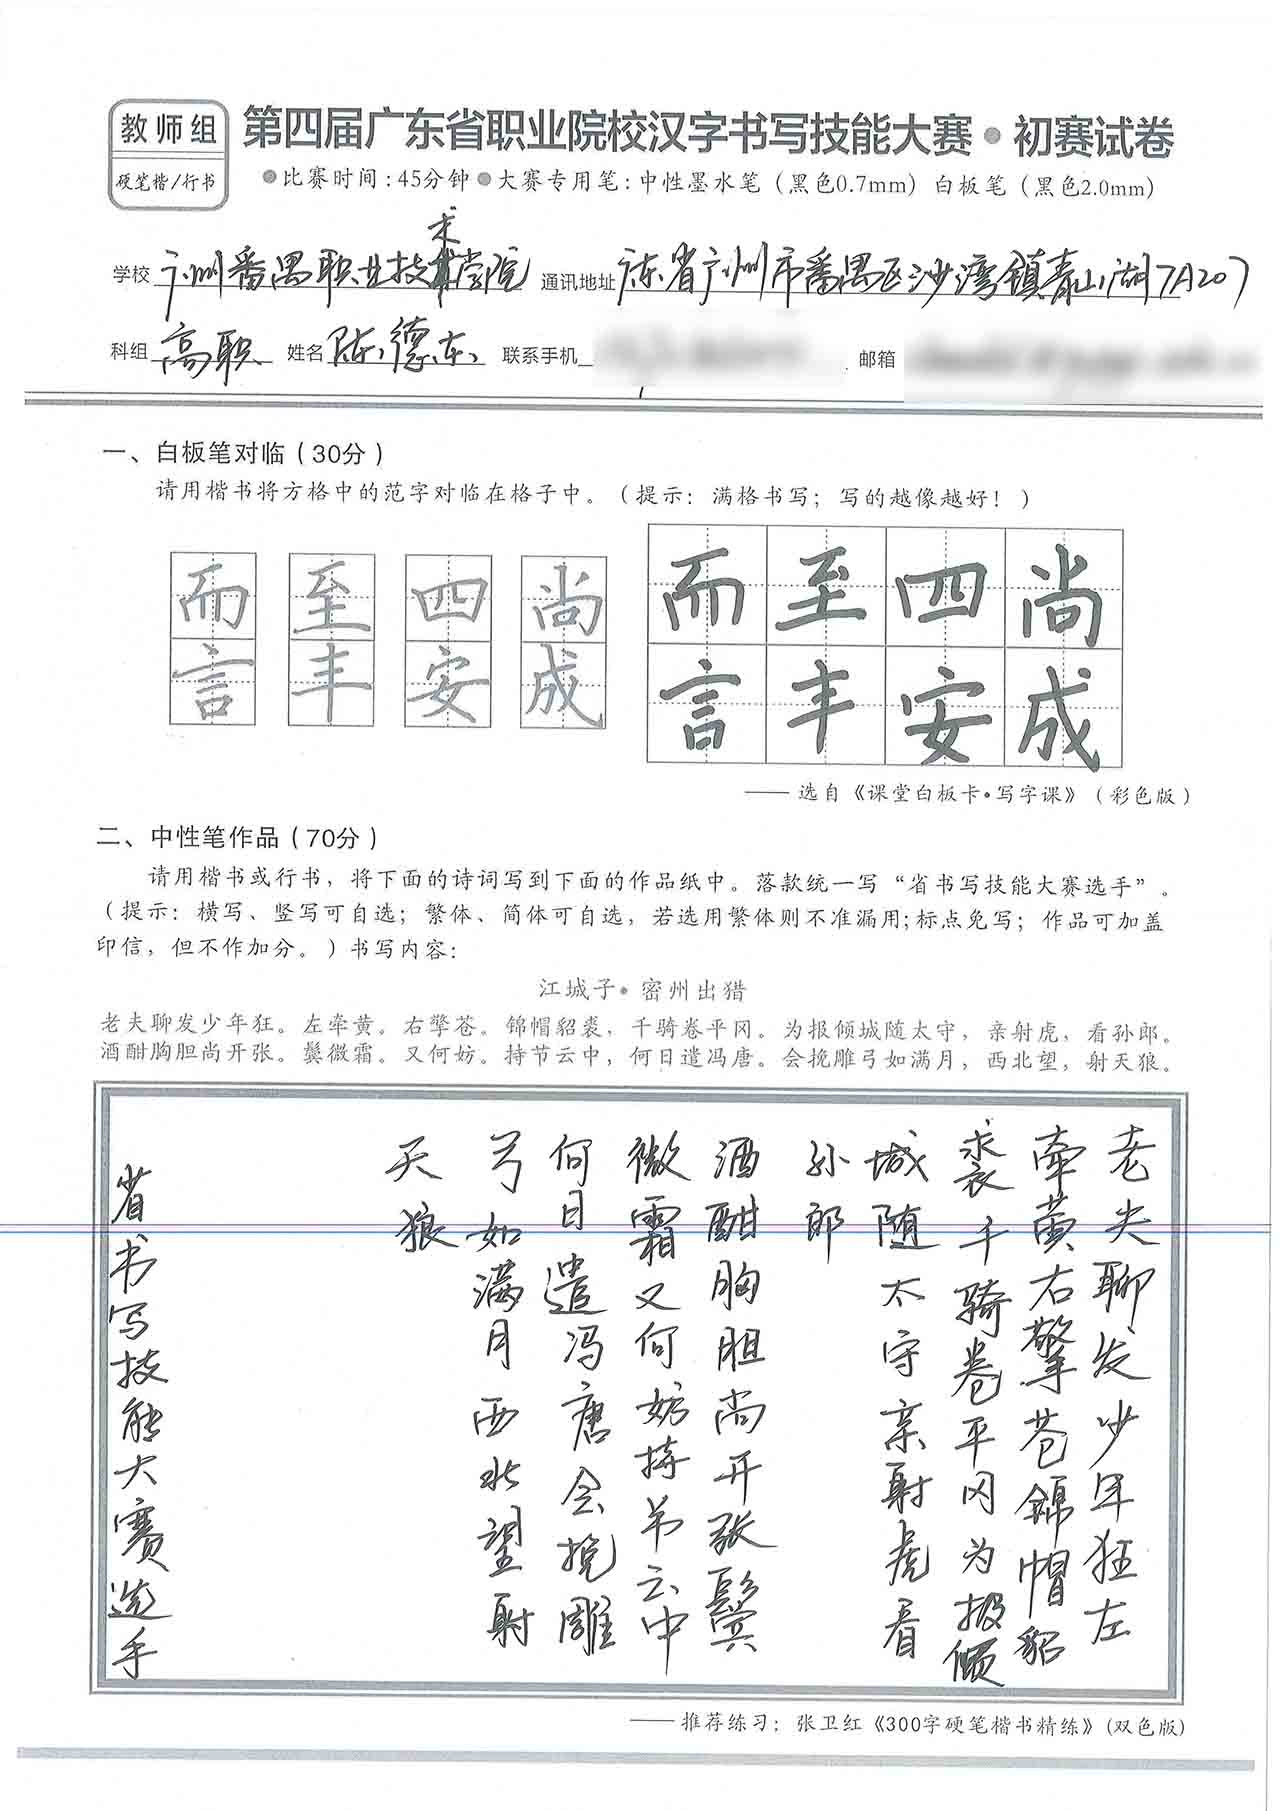 教师组
硬笔楷/行书
第四届广东省职业院校汉字书写技能大赛•初赛试卷
●比赛时间:45分钟●大赛专用笔:中性墨水笔(黑色0.7mm)白板笔(黑色2.0mm)
学校 广州番禺职业技术学院 通讯地址 广东省广州市番禺区沙湾镇青山湖7A207
科组 高职 姓名 陈德东 联系手机 邮箱
一、白板笔对临(30分)
请用楷书将方格中的范字对临在格子中。(提示:满格书写;写的越像越好!)
而 至 四 尚 而 至 四 尚
言 丰 安 成 言 丰 安 成
——选自《课堂白板卡•写字课》(彩色版)
二、中性笔作品(70分)
请用楷书或行书,将下面的诗词写到下面的作品纸中。落款统一写“省书写技能大赛选手”。
(提示:横写、竖写可自选;繁体、简体可自选,若选用繁体则不准漏用;标点免写;作品可加盖
印信,但不作加分。)书写内容:
江城子•密州出猎
老夫聊发少年狂。左牵黄。右擎苍。锦帽貂裘,千骑卷平冈。为报倾城随太守,亲射虎,看孙郎。
酒酣胸胆尚开张。鬓微霜。又何妨。持节云中,何日遣冯唐。会挽雕弓如满月,西北望,射天狼。
老夫聊发少年狂左
牵黄右擎苍锦帽貂
裘千骑卷平冈为报倾
城随太守亲射虎看
孙郎
酒酣胸胆尚开张鬓
微霜又何妨持节云中
何日遣冯唐会挽雕
弓如满月西北望射
天狼
省书写技能大赛选手
——推荐练习:张卫红《300字硬笔楷书精练》(双色版)